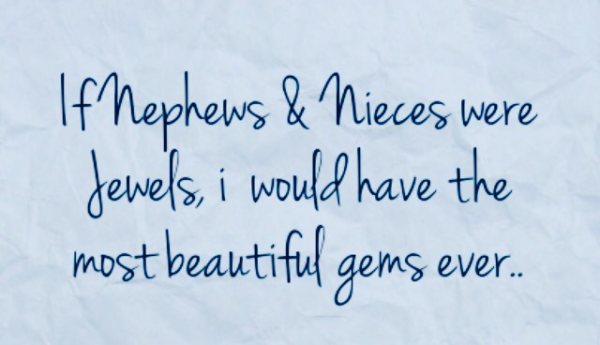 If Nephews & Nieces were
Jewels, i would have the
most beautiful gems ever..